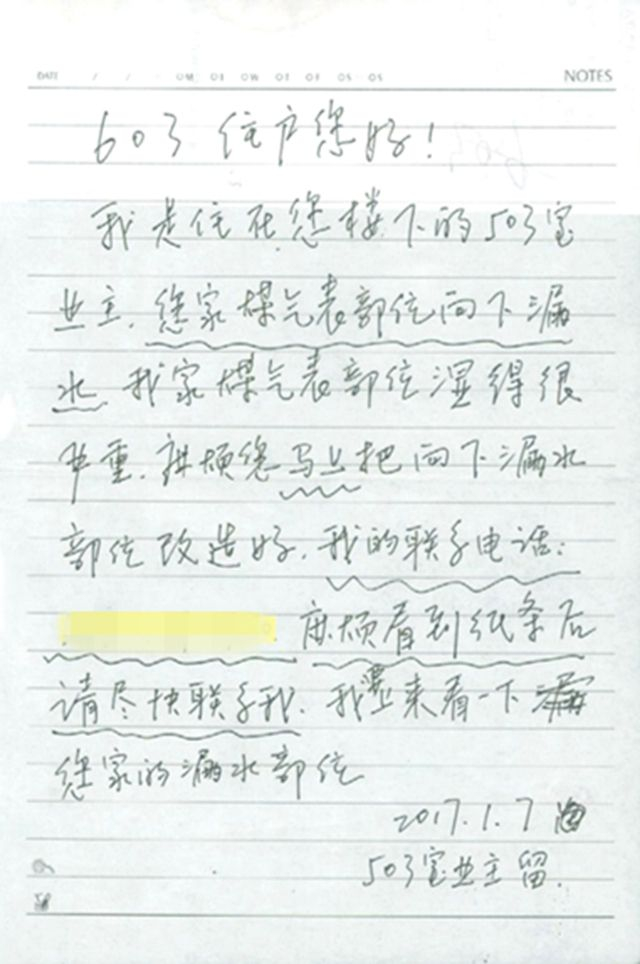 DATE / / OM OT OW OT OF OS OS
NOTES
603住户您好!
我是住在您楼下的503室
业主.您家煤气表部位向下漏
水.我家煤气表部位湿得很
严重.麻烦您马上把向下漏水
部位改造好.我的联系电话:
麻烦看到纸条后
请尽快联系我.我要上来看一下
您家的漏水部位
2017.1.7
503室业主留.